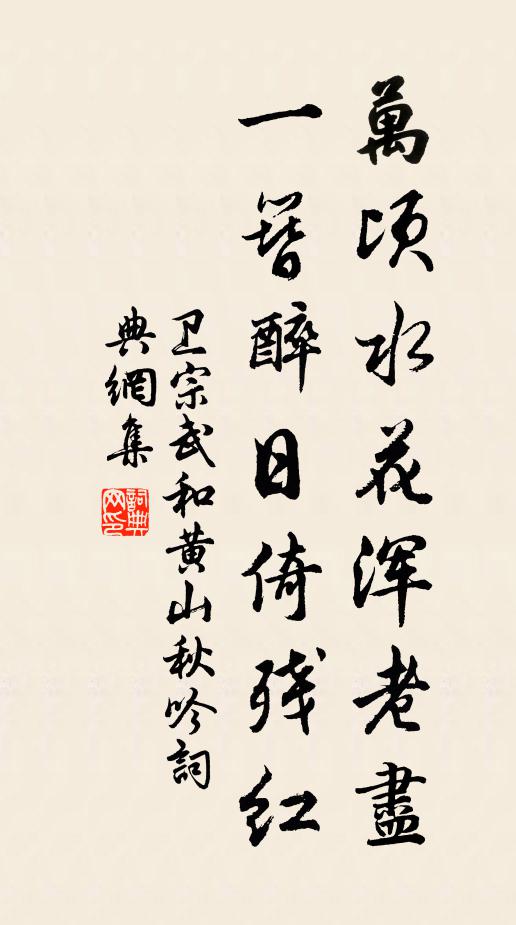 萬頃水花浑老盡
一簪醉日倚残红
卫宗武和黄山秋吟詞
典網集
詞典网印